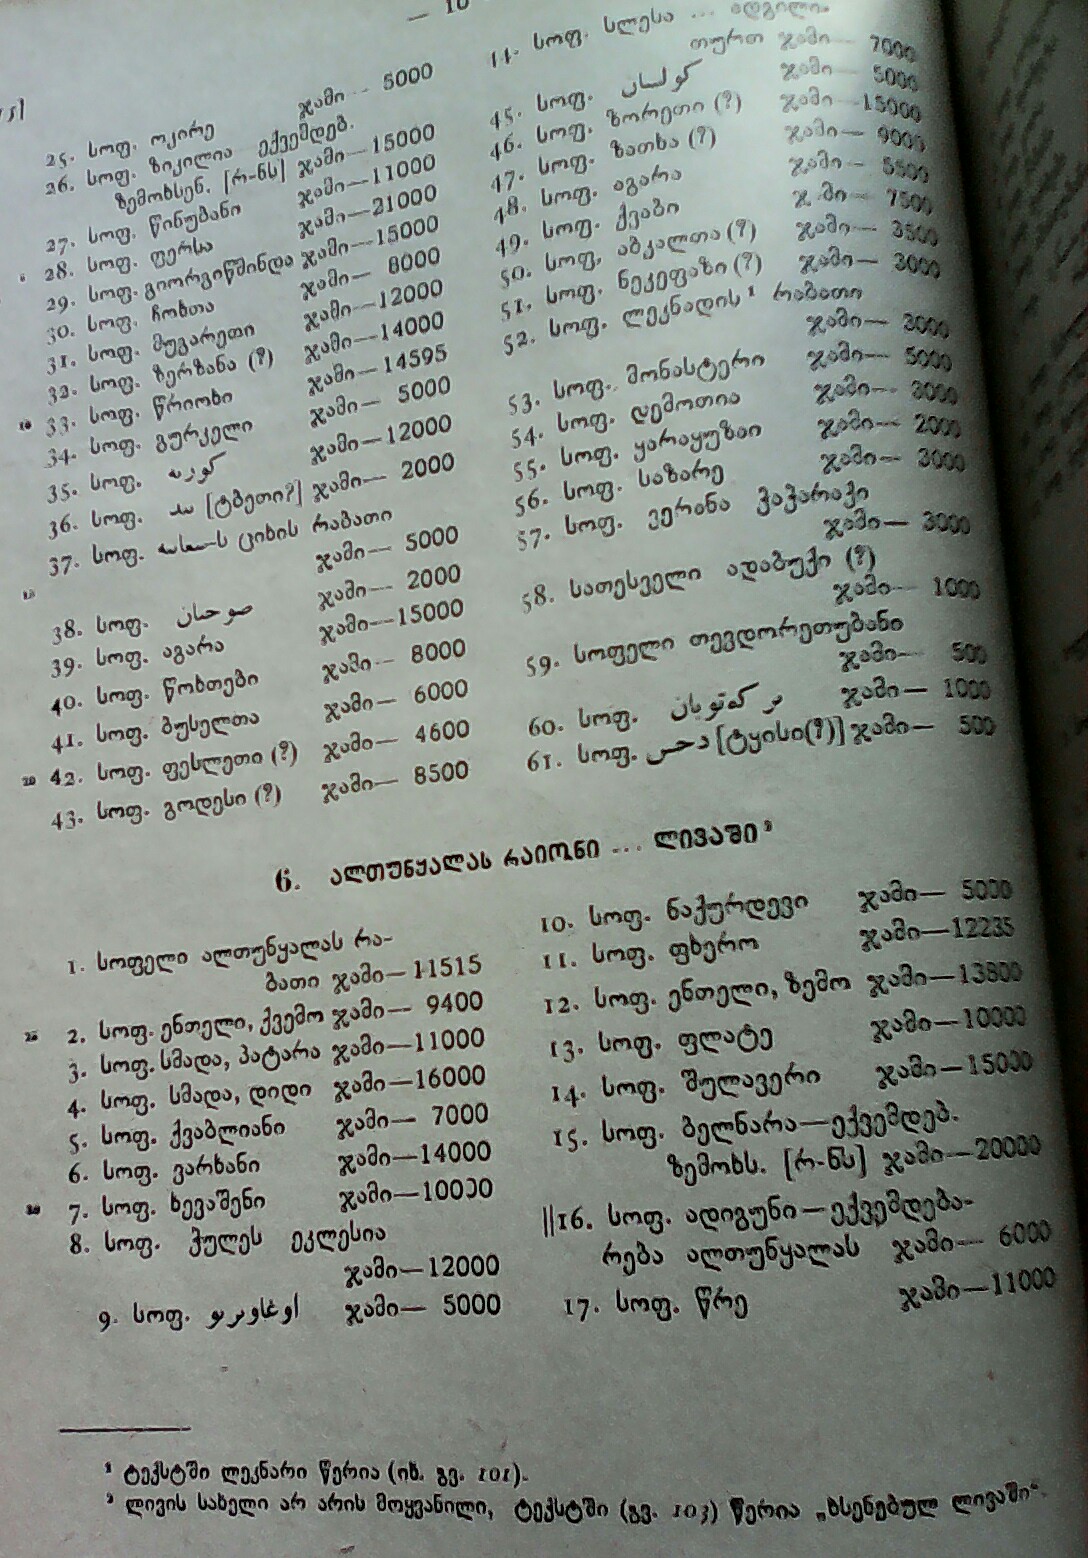 — 10
25. სოფ. ოკირე ჯამი — 5000
26. სოფ. ზიკილია ექვემდებ.
ზემოხსენ. [რ-ნს] ჯამი—15000
27. სოფ. წინუბანი ჯამი—11000
28. სოფ. ფერსა ჯამი—21000
29. სოფ. გიორგიწმინდა ჯამი—15000
30. სოფ. ჩოხთა ჯამი— 8000
31. სოფ. მუგარეთი ჯამი—12000
32. სოფ. ზერზანა (?) ჯამი—14000
33. სოფ. წრიოხი ჯამი—14595
34. სოფ. გურკელი ჯამი— 5000
35. სოფ. ჯამი—12000
36. სოფ. [ტბეთი?] ჯამი— 2000
37. სოფ. ციხის რაბათი
ჯამი— 5000
38. სოფ. صوحان ჯამი— 2000
39. სოფ. აგარა ჯამი—15000
40. სოფ. წოხთები ჯამი— 8000
41. სოფ. ბუსელთა ჯამი— 6000
42. სოფ. ფესლეთი (?) ჯამი— 4600
43. სოფ. გოდესი (?) ჯამი— 8500
სოფ. სლესა ... ადგილი.
თურთ ჯამი— 7000
45. სოფ. كولسان ჯამი— 5000
46. სოფ. ზორეთი (?) ჯამი—15000
47. სოფ. ზათხა (?) ჯამი— 9000
48. სოფ. აგარა ჯამი— 5500
49. სოფ. ქვაბი ჯ მი— 7500
50. სოფ. აბკალთა (?) ჯამი— 3500
51. სოფ. ნეკეფაზი (?) ჯამი— 3000
52. სოფ. ლეკნადის¹ რაბათი
ჯამი— 3000
53. სოფ. მონასტერი ჯამი— 5000
54. სოფ. დემოთია ჯამი— 3000
55. სოფ. ყარაყუზაი ჯამი— 2000
56. სოფ. საზარე ჯამი— 3000
57. სოფ. ვერანა ჭაჭარაქი
ჯამი— 3000
58. სათესველი ადაბუქი (?)
ჯამი— 1000
59. სოფელი თევდორეთუბანი
ჯამი— 500
60. სოფ. ჯამი— 1000
61. სოფ. دحس [ტყისი(?)] ჯამი— 500
6. ალთუნყალას რაიონი ... ლივაში²
1. სოფელი ალთუნყალას რა-
ბათი ჯამი—11515
2. სოფ. ენთელი, ქვემო ჯამი— 9400
3. სოფ. სმადა, პატარა ჯამი—11000
4. სოფ. სმადა, დიდი ჯამი—16000
5. სოფ. ქვაბლიანი ჯამი— 7000
6. სოფ. ვარხანი ჯამი—14000
7. სოფ. ხევაშენი ჯამი—10000
8. სოფ. ჭულეს ეკლესია
ჯამი—12000
9. სოფ. ჯამი— 5000
10. სოფ. ნაქურდევი ჯამი— 5000
11. სოფ. ფხერო ჯამი—12235
12. სოფ. ენთელი, ზემო ჯამი—13800
13. სოფ. ფლატე ჯამი—10000
14. სოფ. შულავერი ჯამი—15000
15. სოფ. ბელნარა—ექვემდებ.
ზემოხს. [რ-ნს] ჯამი—20000
||16. სოფ. ადიგუნი—ექვემდება-
რება ალთუნყალას ჯამი— 6000
17. სოფ. წრე ჯამი—11000
¹ ტექსტში ლეკნარი წერია (იხ. გვ. 101).
² ლივის სახელი არ არის მოყვანილი, ტექსტში (გვ. 103) წერია „ხსენებულ ლივაში“.